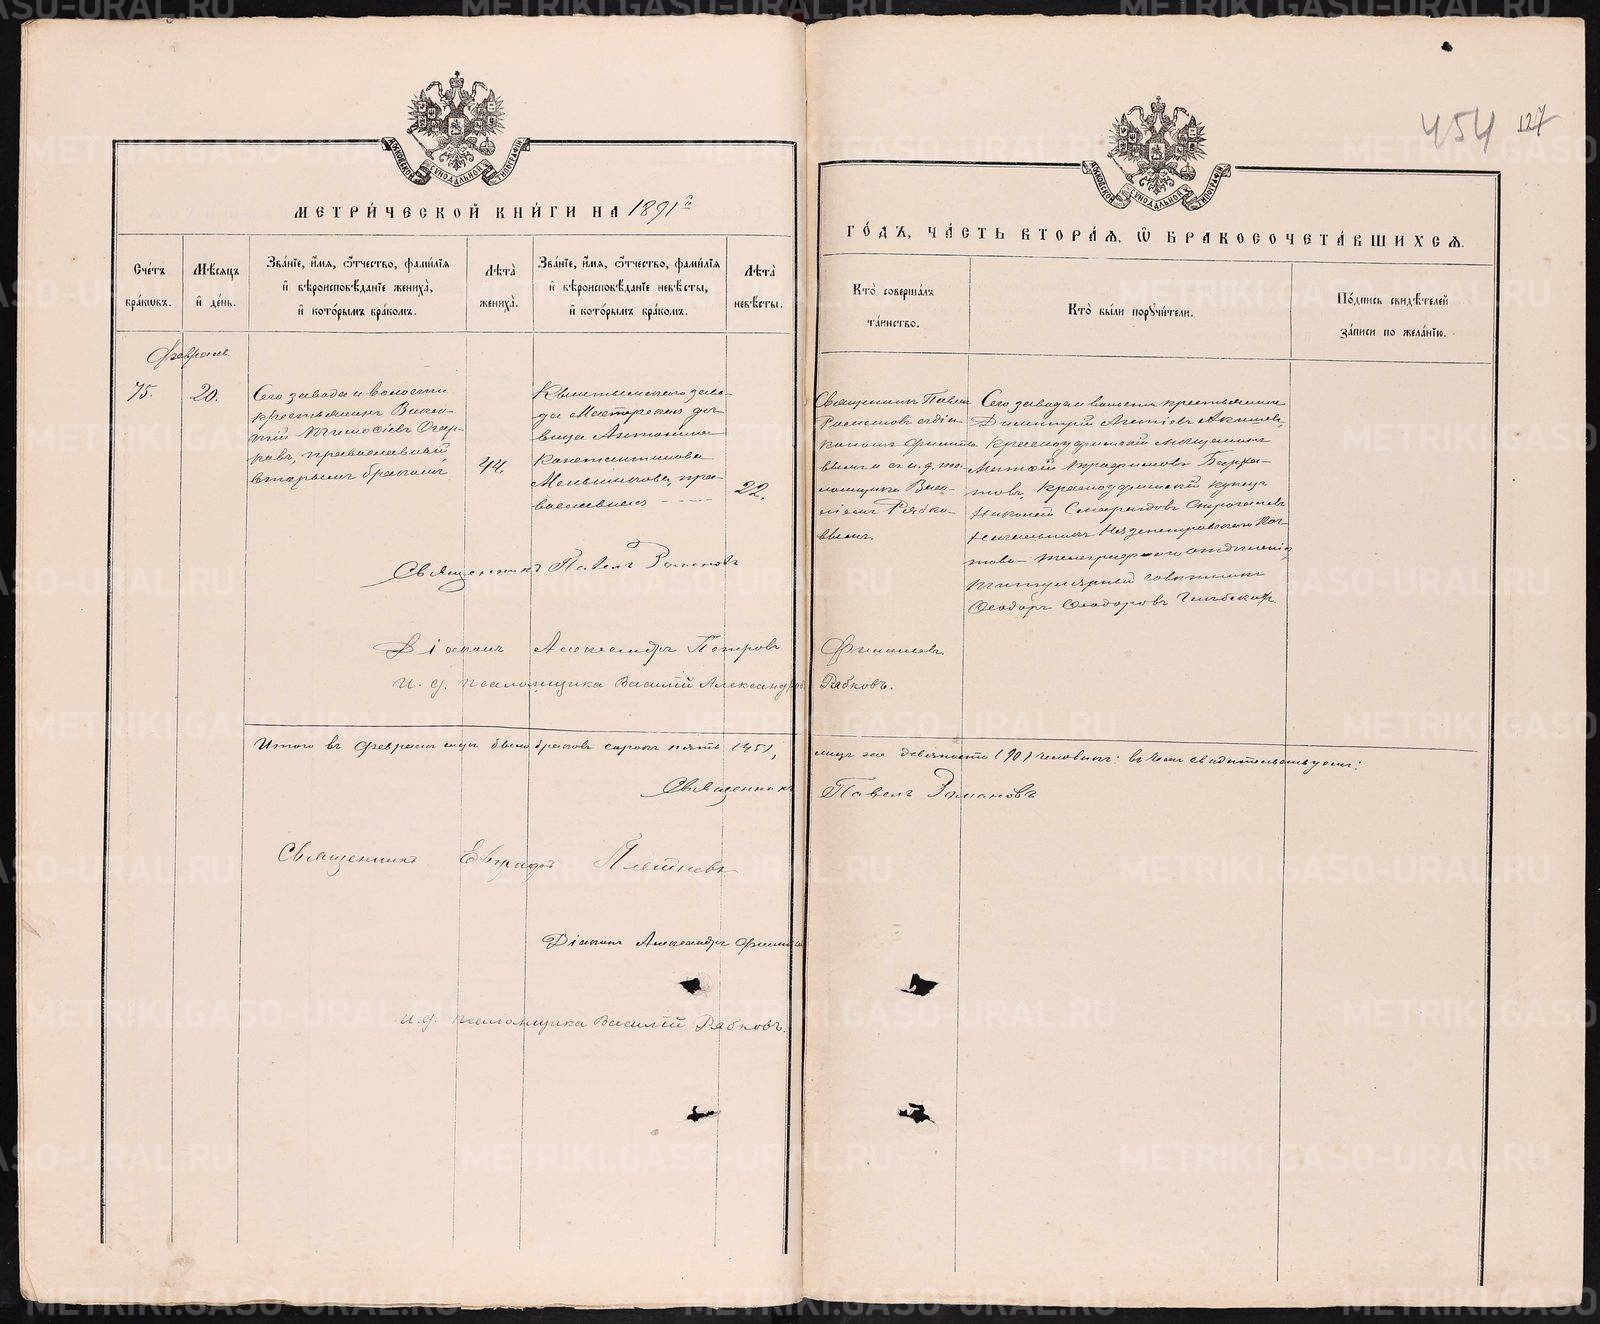 454 127
МЕТРИ́ЧЕСКОЙ КНИ́ГИ НА 1891й
ГО́ДЪ, ЧА́СТЬ ВТОРА́Я, Ѡ҆ БРАКОСОЧЕТА́ВШИХСЯ.
Сче́тъ бра́кѡвъ.
Мѣ́сяцъ и҆ де́нь.
Зва́нїе, и҆́мя, ѻ҆́тчество, фами́лїя
и҆ вѣроисповѣ́данїе жениха̀,
и҆ кото́рымъ бра́комъ.
Лѣта̀ жениха̀.
Зва́нїе, и҆́мя, ѻ҆́тчество, фами́лїя
и҆ вѣроисповѣ́данїе невѣ́сты,
и҆ кото́рымъ бра́комъ.
Лѣта̀ невѣ́сты.
Кто̀ соверша́лъ
та́инство.
Кто̀ бы́ли порꙋчи́тели.
По́дпись свидѣ́телей
за́писи по жела́нїю.
Февраль.
75.
20.
Сего завода и волости
крестьянинъ
Тимофіевъ
православный,
вторымъ бракомъ
44.
Кыштымскаго заво-
да Мастерская дѣ-
вица Антонина
Константинова
Мельникова, пра-
вославная
22.
Священникъ Павелъ
Романовъ съ діа-
кономъ
и и. д. пса-
ломщика Васи-
ліемъ Рябко-
вымъ.
Сего завода и волости крестьянинъ
Димитрій
Красноуфимскій мѣщанинъ
Красноуфимскій купецъ
Начальникъ Нязепетровскаго Поч-
тово-телеграфнаго отдѣленія
титулярный совѣтникъ
Ѳеодоръ Ѳеодоровъ
Священникъ Павелъ Романовъ
Діаконъ Александръ Петровъ
И. д. псаломщика Василій Александровъ Рябковъ.
Итого въ Февралѣ мѣц. было браковъ сорокъ пять (45),
лицъ же девяносто (90) человѣкъ: въ чемъ свидѣтельствуемъ:
Священникъ Павелъ Романовъ
Священникъ Евграфъ Плетневъ
Діаконъ Александръ
И. д. псаломщика Василій Рябковъ.
METRIKI.GASO-URAL.RU